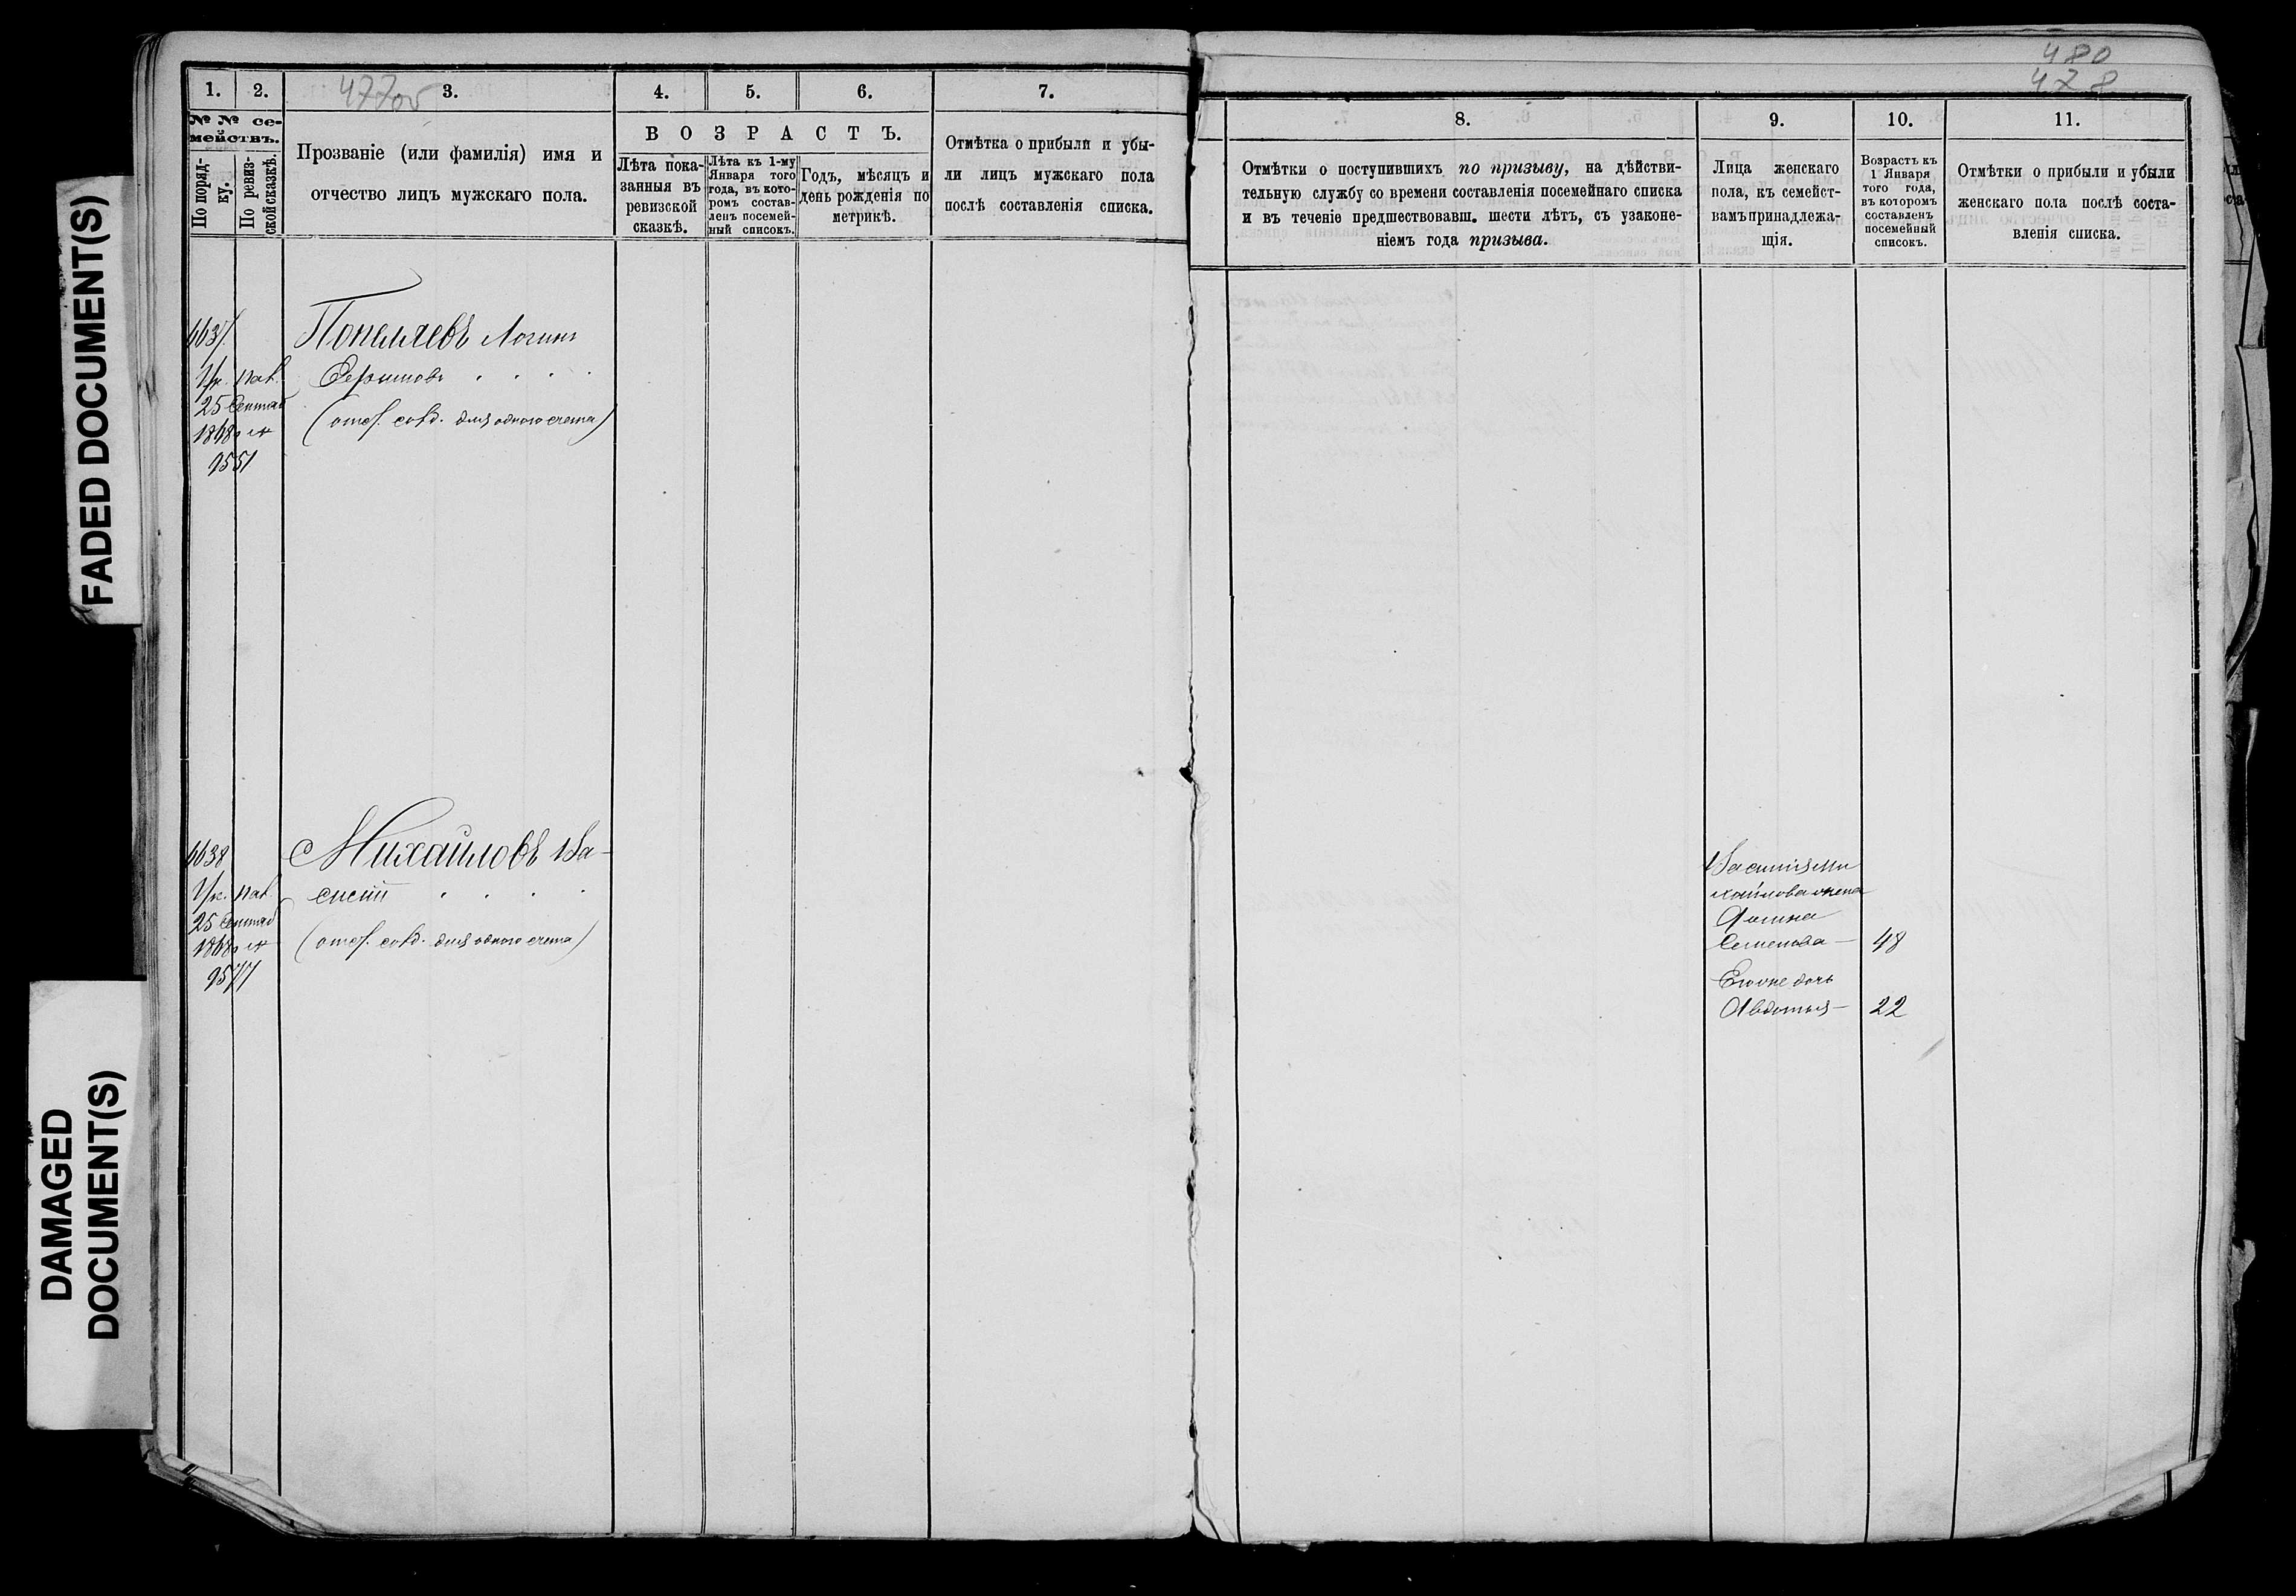 FADED DOCUMENT(S)
DAMAGED
DOCUMENT(S)
477об
1.
2.
3.
4.
5.
6.
7.
№ № се-
мействъ.
По поряд-
ку.
По ревиз-
ской сказкѣ.
Прозваніе (или фамилія) имя и
отчество лицъ мужскаго пола.
ВОЗРАСТЪ.
Лѣта пока-
занныя въ
ревизской
сказкѣ.
Лѣта къ 1-му
Января того
года, въ кото-
ромъ состав-
ленъ посемей-
ный списокъ.
Годъ, мѣсяцъ и
день рожденія по
метрикѣ.
Отмѣтка о прибыли и убы-
ли лицъ мужскаго пола
послѣ составленія списка.
4637
25 Сентяб
1868
9551
Логинъ
(отст. солд. для одного счета)
4638
25 Сентяб
1868
9577
Михайловъ Ва-
силій
(отст. солд. для одного счета)
480
478
8.
9.
10.
11.
Отмѣтки о поступившихъ по призыву, на дѣйстви-
тельную службу со времени составленія посемейнаго списка
и въ теченіе предшествовавш. шести лѣтъ, съ узаконе-
ніемъ года призыва.
Лица женскаго
пола, къ семейст-
вамъ принадлежа-
щія.
Возрастъ къ
1 Января
того года,
въ которомъ
составленъ
посемейный
списокъ.
Отмѣтки о прибыли и убыли
женскаго пола послѣ соста-
вленія списка.
Василія Ми
хайлова жена
Семенова — 48
Его же дочь
Авдотья — 22